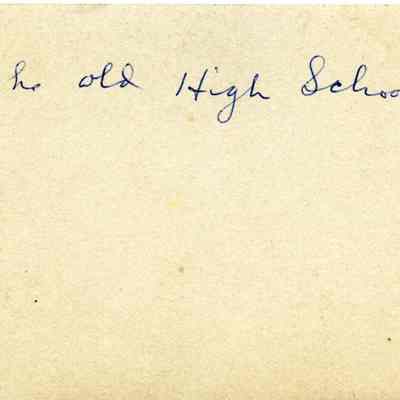 he old High Schoo